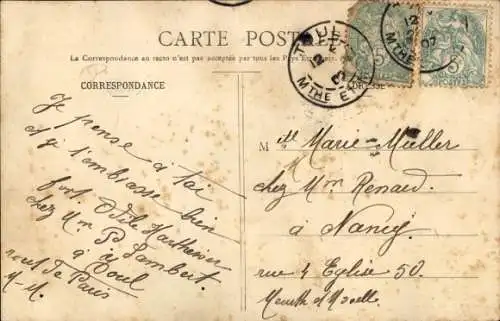 CARTE POSTALE
La Correspondance au recto n'est pas acceptée par tous les Pays Étrangers
CORRESPONDANCE
TOUL
12
07
MTHE ET
12
07
MTHE
5
5
Je pense à toi
et je t'embrasse bien
fort. Odile
chez Mr Lambert.
à Toul
rue de Paris
M-M.
Mlle Marie Müller
chez Mr Renard
à Nancy
rue 4 Eglise 50.
Meurthe et Moselle